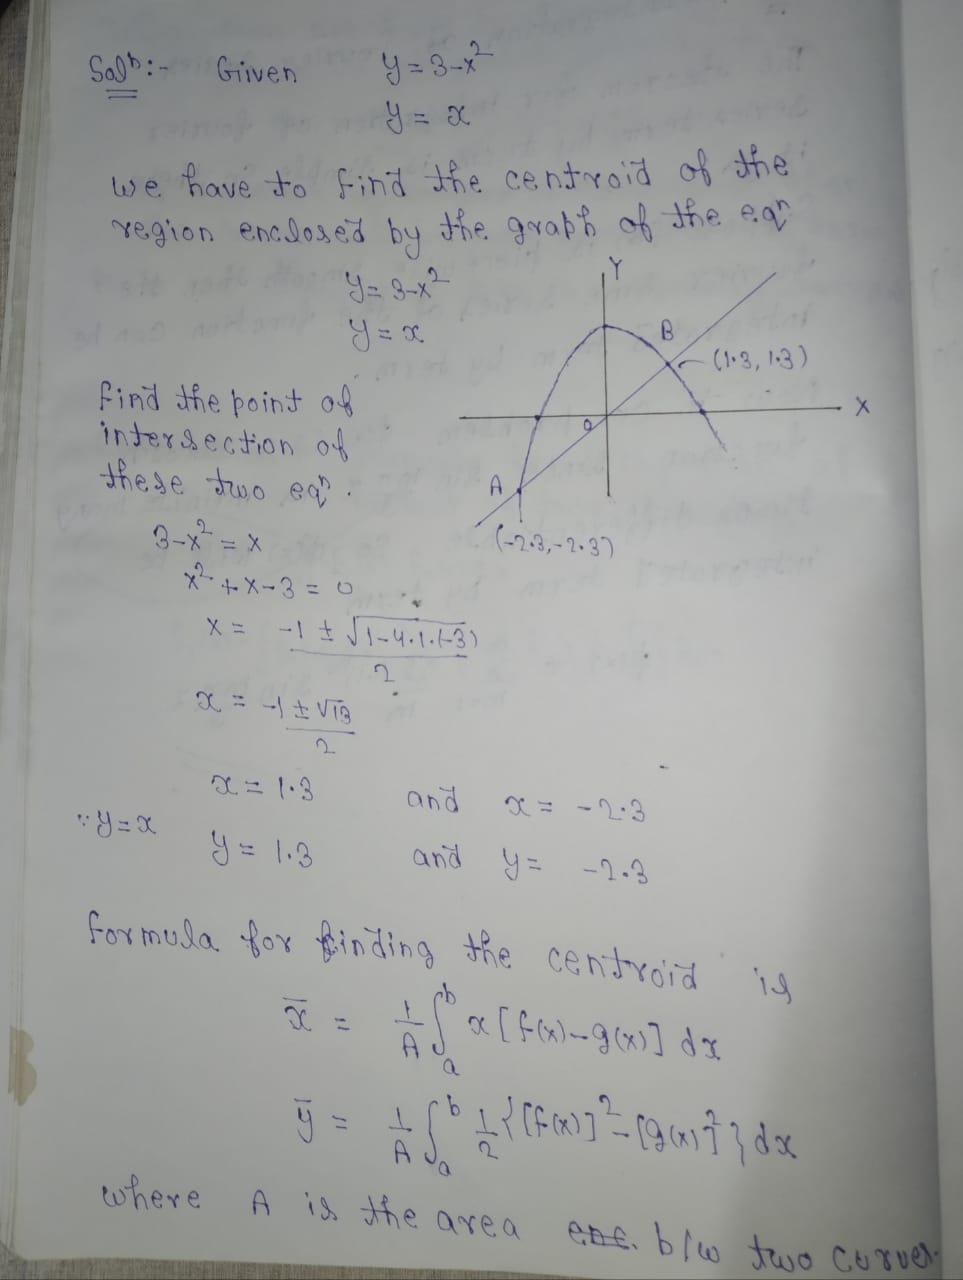 Solⁿ:- Given y = 3-x²
y = x
we have to find the centroid of the
region enclosed by the graph of the eqⁿ
y = 3-x²
y = x
Y
B
(1.3, 1.3)
X
O
A
(-2.3, -2.3)
find the point of
intersection of
these two eqⁿ.
3-x² = x
x² + x - 3 = 0
x = (-1 ± √(1-4.1.(-3)))/2
x = (-1 ± √13)/2
x = 1.3 and x = -2.3
∵ y = x
y = 1.3 and y = -2.3
formula for finding the centroid is
x̄ = 1/A ∫ₐᵇ x [f(x) - g(x)] dx
ȳ = 1/A ∫ₐᵇ 1/2 {[f(x)]² - [g(x)]²} dx
where A is the area enc. b/w two curves.